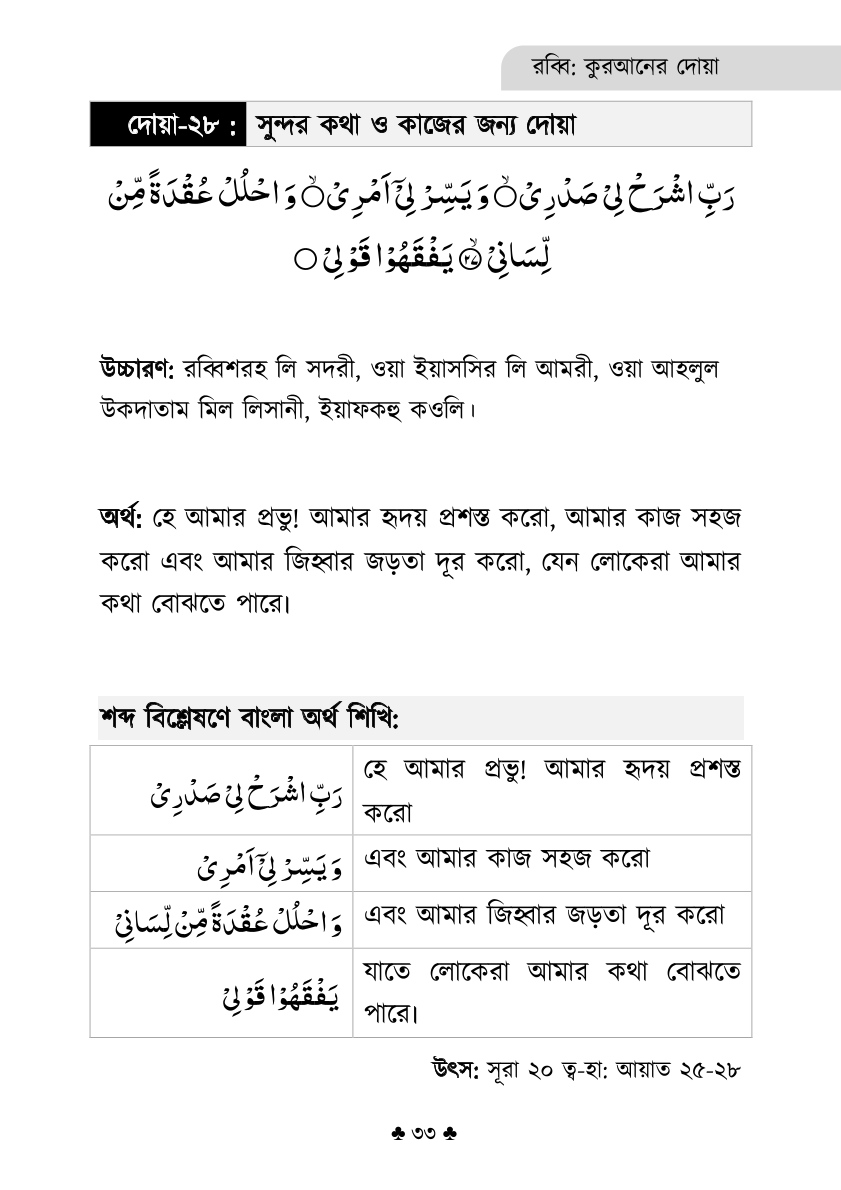 রব্বি: কুরআনের দোয়া
দোয়া-২৮ : সুন্দর কথা ও কাজের জন্য দোয়া
رَبِّ اشْرَحْ لِیْ صَدْرِیْ ۙ وَ یَسِّرْ لِیْۤ اَمْرِیْ ۙ وَ احْلُلْ عُقْدَةً مِّنْ
لِّسَانِیْ ۙ۲۷ یَفْقَهُوْا قَوْلِیْ ○
উচ্চারণ: রব্বিশরহ লি সদরী, ওয়া ইয়াসসির লি আমরী, ওয়া আহলুল
উকদাতাম মিল লিসানী, ইয়াফকহু কওলি।
অর্থ: হে আমার প্রভু! আমার হৃদয় প্রশস্ত করো, আমার কাজ সহজ
করো এবং আমার জিহ্বার জড়তা দূর করো, যেন লোকেরা আমার
কথা বোঝতে পারে।
শব্দ বিশ্লেষণে বাংলা অর্থ শিখি:
رَبِّ اشْرَحْ لِیْ صَدْرِیْ
হে আমার প্রভু! আমার হৃদয় প্রশস্ত
করো
وَ یَسِّرْ لِیْۤ اَمْرِیْ
এবং আমার কাজ সহজ করো
وَ احْلُلْ عُقْدَةً مِّنْ لِّسَانِیْ
এবং আমার জিহ্বার জড়তা দূর করো
یَفْقَهُوْا قَوْلِیْ
যাতে লোকেরা আমার কথা বোঝতে
পারে।
উৎস: সূরা ২০ ত্ব-হা: আয়াত ২৫-২৮
♣ ৩৩ ♣